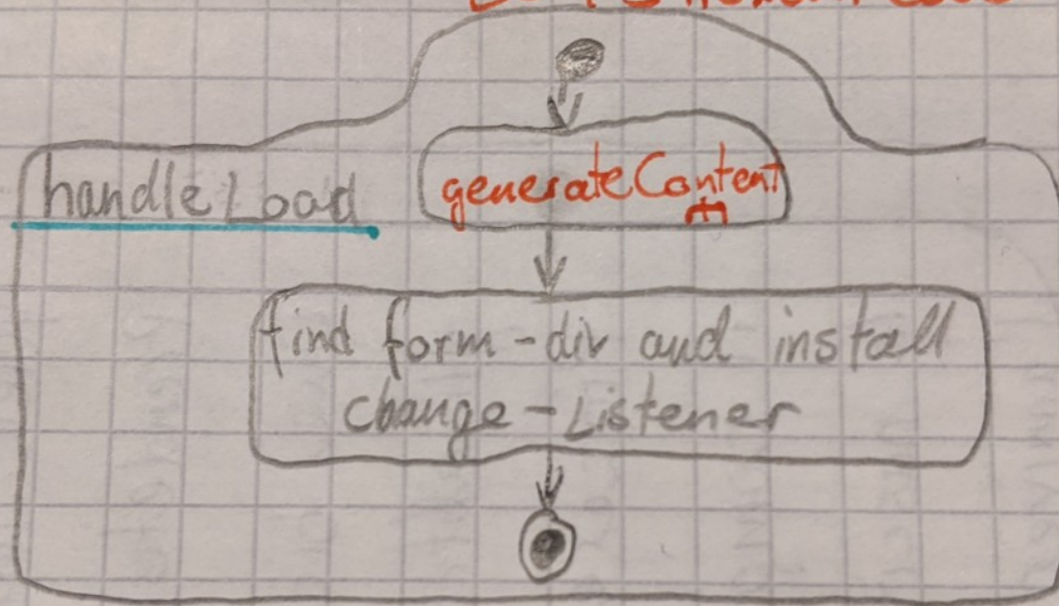 handleLoad
generateContent
find form-div and install
change-Listener